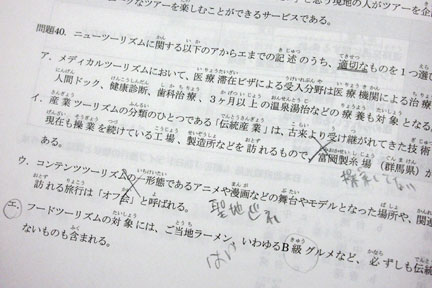 ツアーを楽しむことができるサービスである。
問題40. ニューツーリズムに関する以下のアからエまでの記述のうち、適切なものを1つ選び
ア. メディカルツーリズムにおいて、医療滞在ビザによる受入分野は医療機関による治療
人間ドック、健康診断、歯科治療、3ヶ月以上の温泉湯治などの療養も対象となる
イ. 産業ツーリズムの分類のひとつである「伝統産業」は、古来より受け継がれてきた技術
現在も操業を続けている工場、製造所などを訪れるもので、富岡製糸場(群馬県)が
ある。
操業してない
ウ. コンテンツツーリズムの一形態であるアニメや漫画などの舞台やモデルとなった場所や、関連
訪れる旅行は「オフ会」と呼ばれる。
聖地巡礼
エ. フードツーリズムの対象には、ご当地ラーメン、いわゆるB級グルメなど、必ずしも伝統
ないものも含まれる。